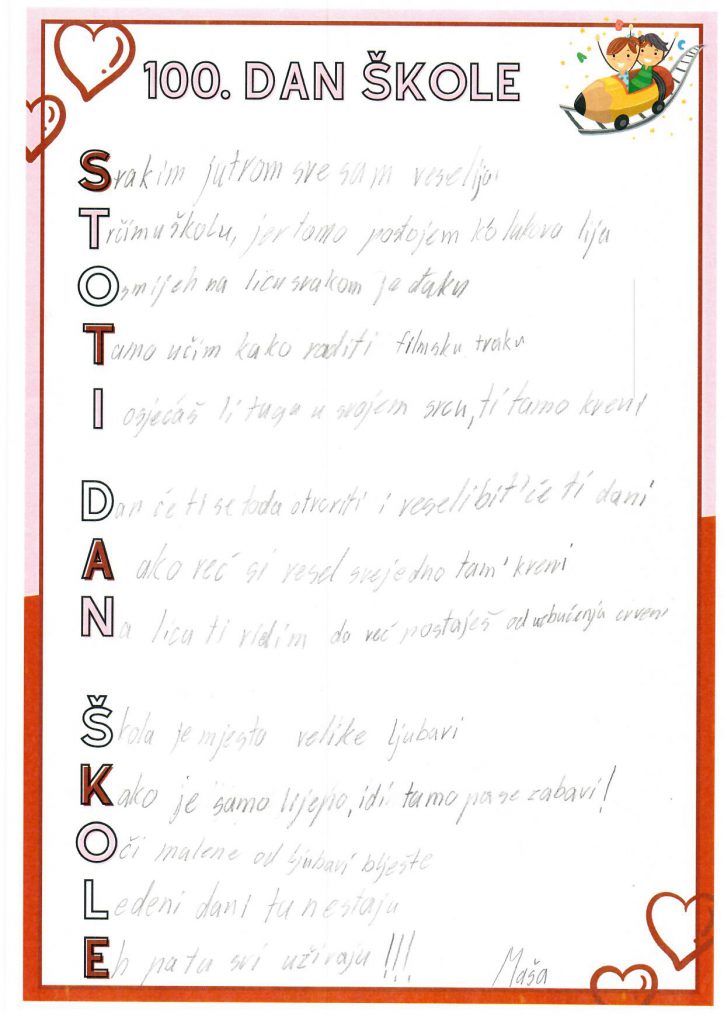 100. DAN ŠKOLE
A B C
Svakim jutrom sve sam veselija
Trčim u školu, jer tamo postojem k'o lukova lija
Osmijeh na licu svakom je đaku
Tamo učim kako raditi filmsku traku
I osjećaš li tugu u svojem srcu, ti tamo kreni
Dan će ti se tada otvoriti i veseli bit' će ti dani
A ako već si vesel svejedno tam' kreni
Na licu ti vidim da već postaješ od uzbuđenja crveni
Škola je mjesto velike ljubavi
Kako je samo lijepo, idi tamo pa se zabavi!
Oči malene od ljubavi blješte
Ledeni dani tu nestaju
Eh pa tu svi uživaju!!!
Maša